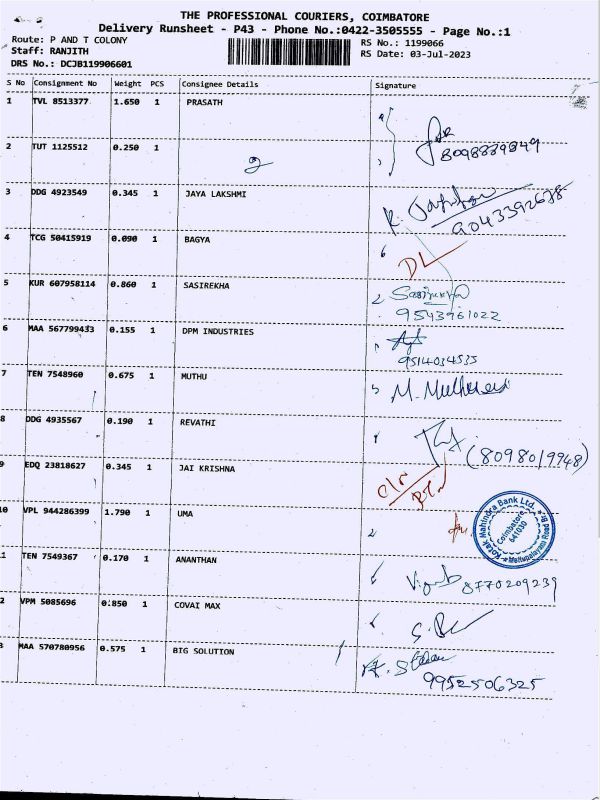 THE PROFESSIONAL COURIERS, COIMBATORE
Delivery Runsheet - P43 - Phone No.:0422-3505555 - Page No.:1
Route: P AND T COLONY
RS No.: 1199066
Staff: RANJITH
RS Date: 03-Jul-2023
DRS No.: DCJB119906601
S No Consignment No Weight PCS Consignee Details Signature
1 TVL 8513377 1.650 1 PRASATH
2 TUT 1125512 0.250 1
8098889849
3 DDG 4923549 0.345 1 JAYA LAKSHMI
9043392678
4 TCG 50415919 0.090 1 BAGYA
DL
5 KUR 607958114 0.860 1 SASIREKHA
Sasirekha
9543961022
6 MAA 567799433 0.155 1 DPM INDUSTRIES
9514034535
7 TEN 7548960 0.675 1 MUTHU
8 DDG 4935567 0.190 1 REVATHI
(8098019948)
9 EDQ 23818627 0.345 1 JAI KRISHNA
10 VPL 944286399 1.790 1 UMA
Kotak Mahindra Bank Ltd.
Coimbatore
641030
Mettupalayam Road Br.
1 TEN 7549367 0.170 1 ANANTHAN
8770209239
2 VPM 5085696 0.850 1 COVAI MAX
3 MAA 570780956 0.575 1 BIG SOLUTION
9952506325